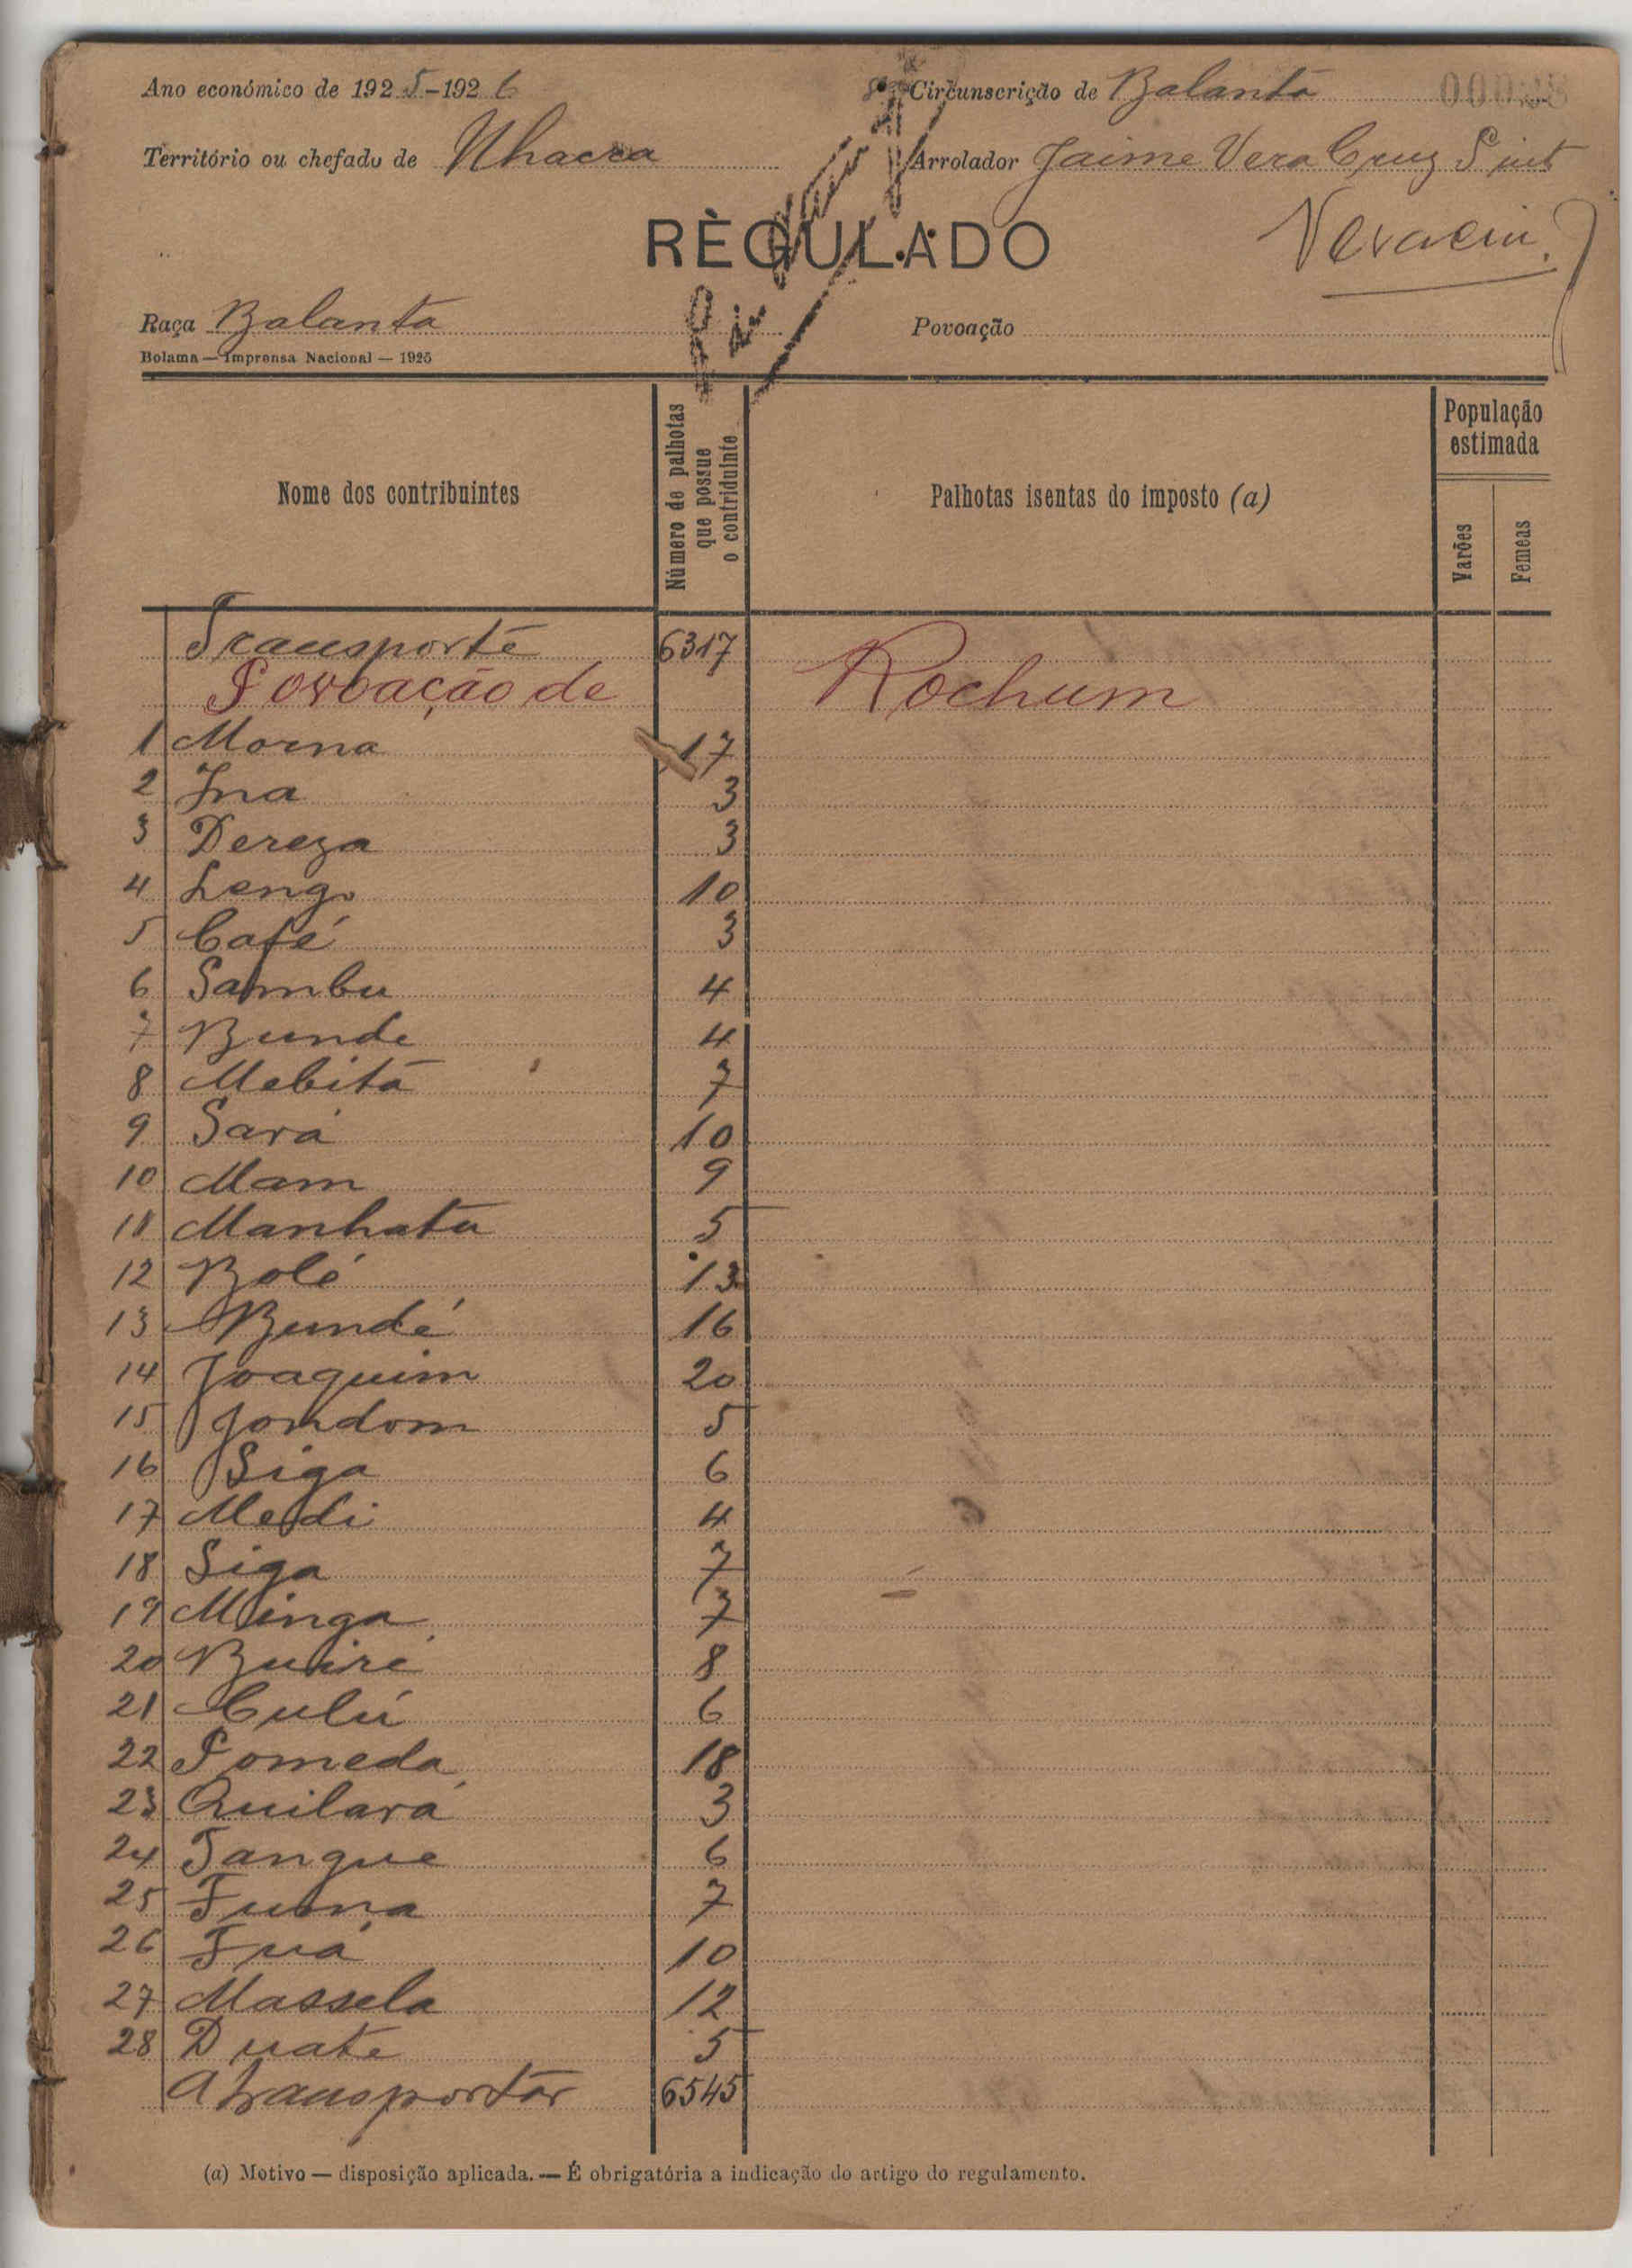 Ano económico de 1925-1926
Circunscrição de Balanta
Território ou chefado de Nhacra
Arrolador Jaime Vera Cruz
RÈGULADO
Raça Balanta
Povoação
Bolama — Imprensa Nacional — 1925
Nome dos contribuintes
Número de palhotas que possue o contriduinte
Palhotas isentas do imposto (a)
População estimada
Varões
Femeas
Transporte 6317
Povoação de Rochum
1 Morna 17
2 Ina 3
3 Dereza 3
4 Lengo 10
5 Café 3
6 Sambu 4
7 Bunde 4
8 Mebitá 7
9 Sará 10
10 Mam 9
11 Manhatu 5
12 Bolé 13
13 Bundé 16
14 Joaquim 20
15 Jondom 5
16 Siga 6
17 Medi 4
18 Siga 7
19 Minga 7
20 8
21 Culú 6
22 Pomeda 18
23 Quilará 3
24 Tangue 6
25 7
26 Fuá 10
27 Massela 12
28 Duate 5
A transportar 6545
(a) Motivo — disposição aplicada. — É obrigatória a indicação do artigo do regulamento.